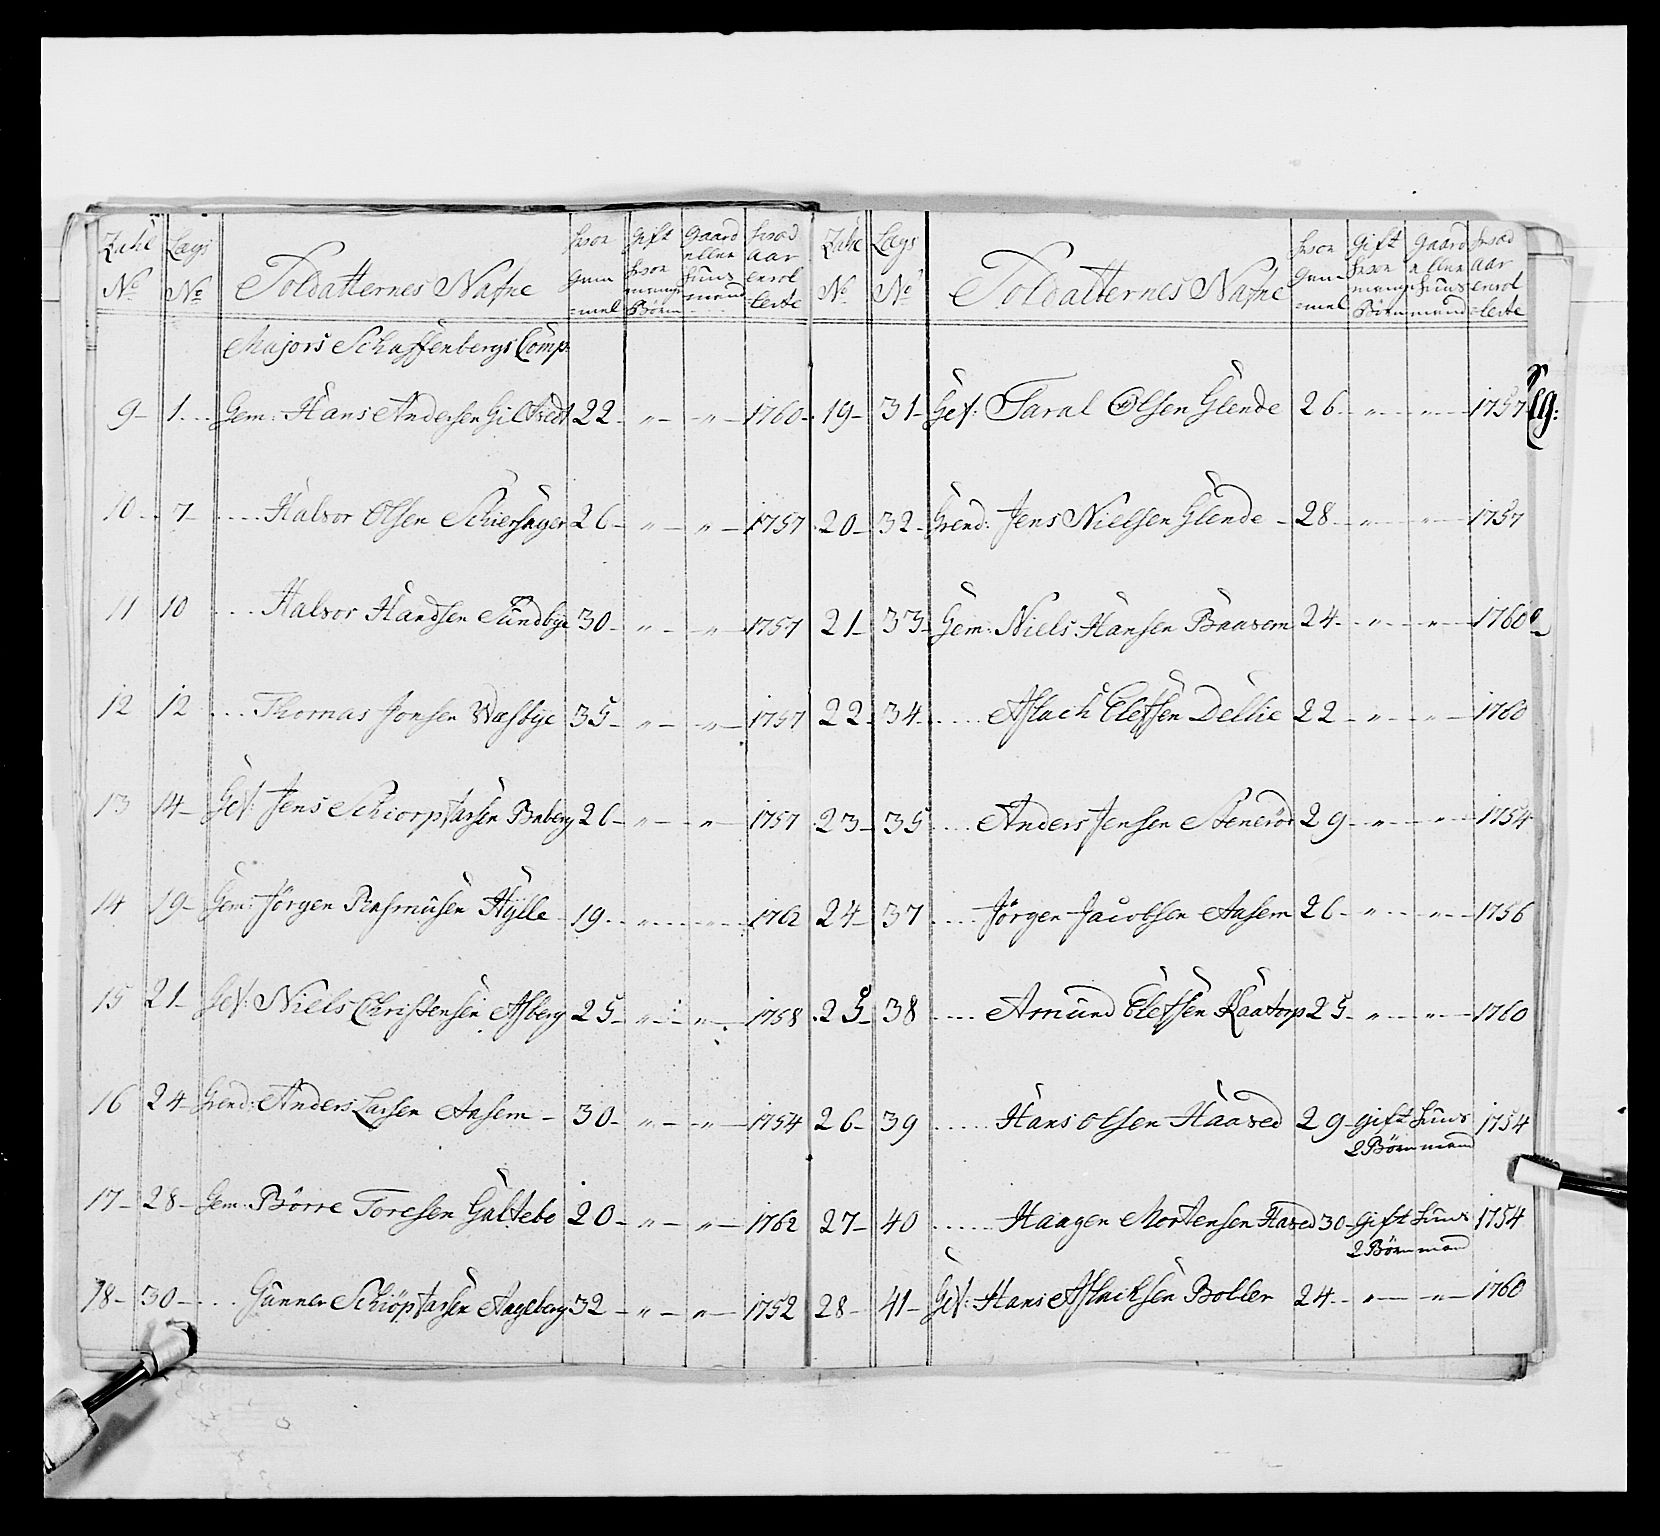 Zahl No | Lægs No | Soldatternes Nafne | hvor gammel | Gift hvor mange Børn | Gaard eller Huusmand | hvad Aar enrollerte
Majors Schaffenbergs Comp:
9 – 1 ... Gem: Hans Andersen 22 – " – " – 1760
10 – 7 – .... Halvor Olsen Schiersager 26 – " – " – 1757
11 10 .... Halvor Handsen Sundbye 30 – " – " – 1757
12 12 .... Thomas Jonsen Wæsbye 35 – " – " – 1757
13 14 – Gef: Jens Schiorptarsen 26 – " – " – 1757
14 19 – Gem: Jörgen Rasmusen Hÿlle 19 – " – " – 1762
15 21 – Gef: Niels Christensen Asberg 25 – " – " – 1758
16 24 – Grend: Anders Larsen Aasem – 30 – " – " – 1754
17 – 28 – Gem: Börre Toresen Galtebo 20 – " – " – 1762
18 – 30 – .... Gunner Schiöptarsen Angeberg 32 – " – " – 1752
Zahl No | Lægs No | Soldatternes Nafne | hvor gammel | Gift hvor mange Børn | Gaard eller Huusmand | hvad Aar enrollerte
19 – 31 – Gef: Taral Olsen Glende 26 – " – " – 1757
20 – 32 – Grend: Jens Nielsen Glende – 28 – " – " – 1757
21 – 33 – Gem: Niels Hansen Baasem 24 – " – " – 1760
22 – 34 – .... Aslach Elefsen Dellie 22 – " – " – 1760
23 – 35 .... Anders Jensen Stenerör 29 – " – " – 1754
24 – 37 .... Jörgen Jacobsen Aasem 26 – " – " – 1756
25 – 38 .... Amund Elefsen Kaatorp 25 – " – " – 1760
26 – 39 ..... Hans Olsen Haaved 29 – gift Huus 1754
2 Börn mand
27 – 40 ..... Haagen Mortensen Haved 30 – Gift Huus 1754
2 Börn mand
28 – 41 – Gef: Hans Aslachsen Boller 24 – " – " – 1760